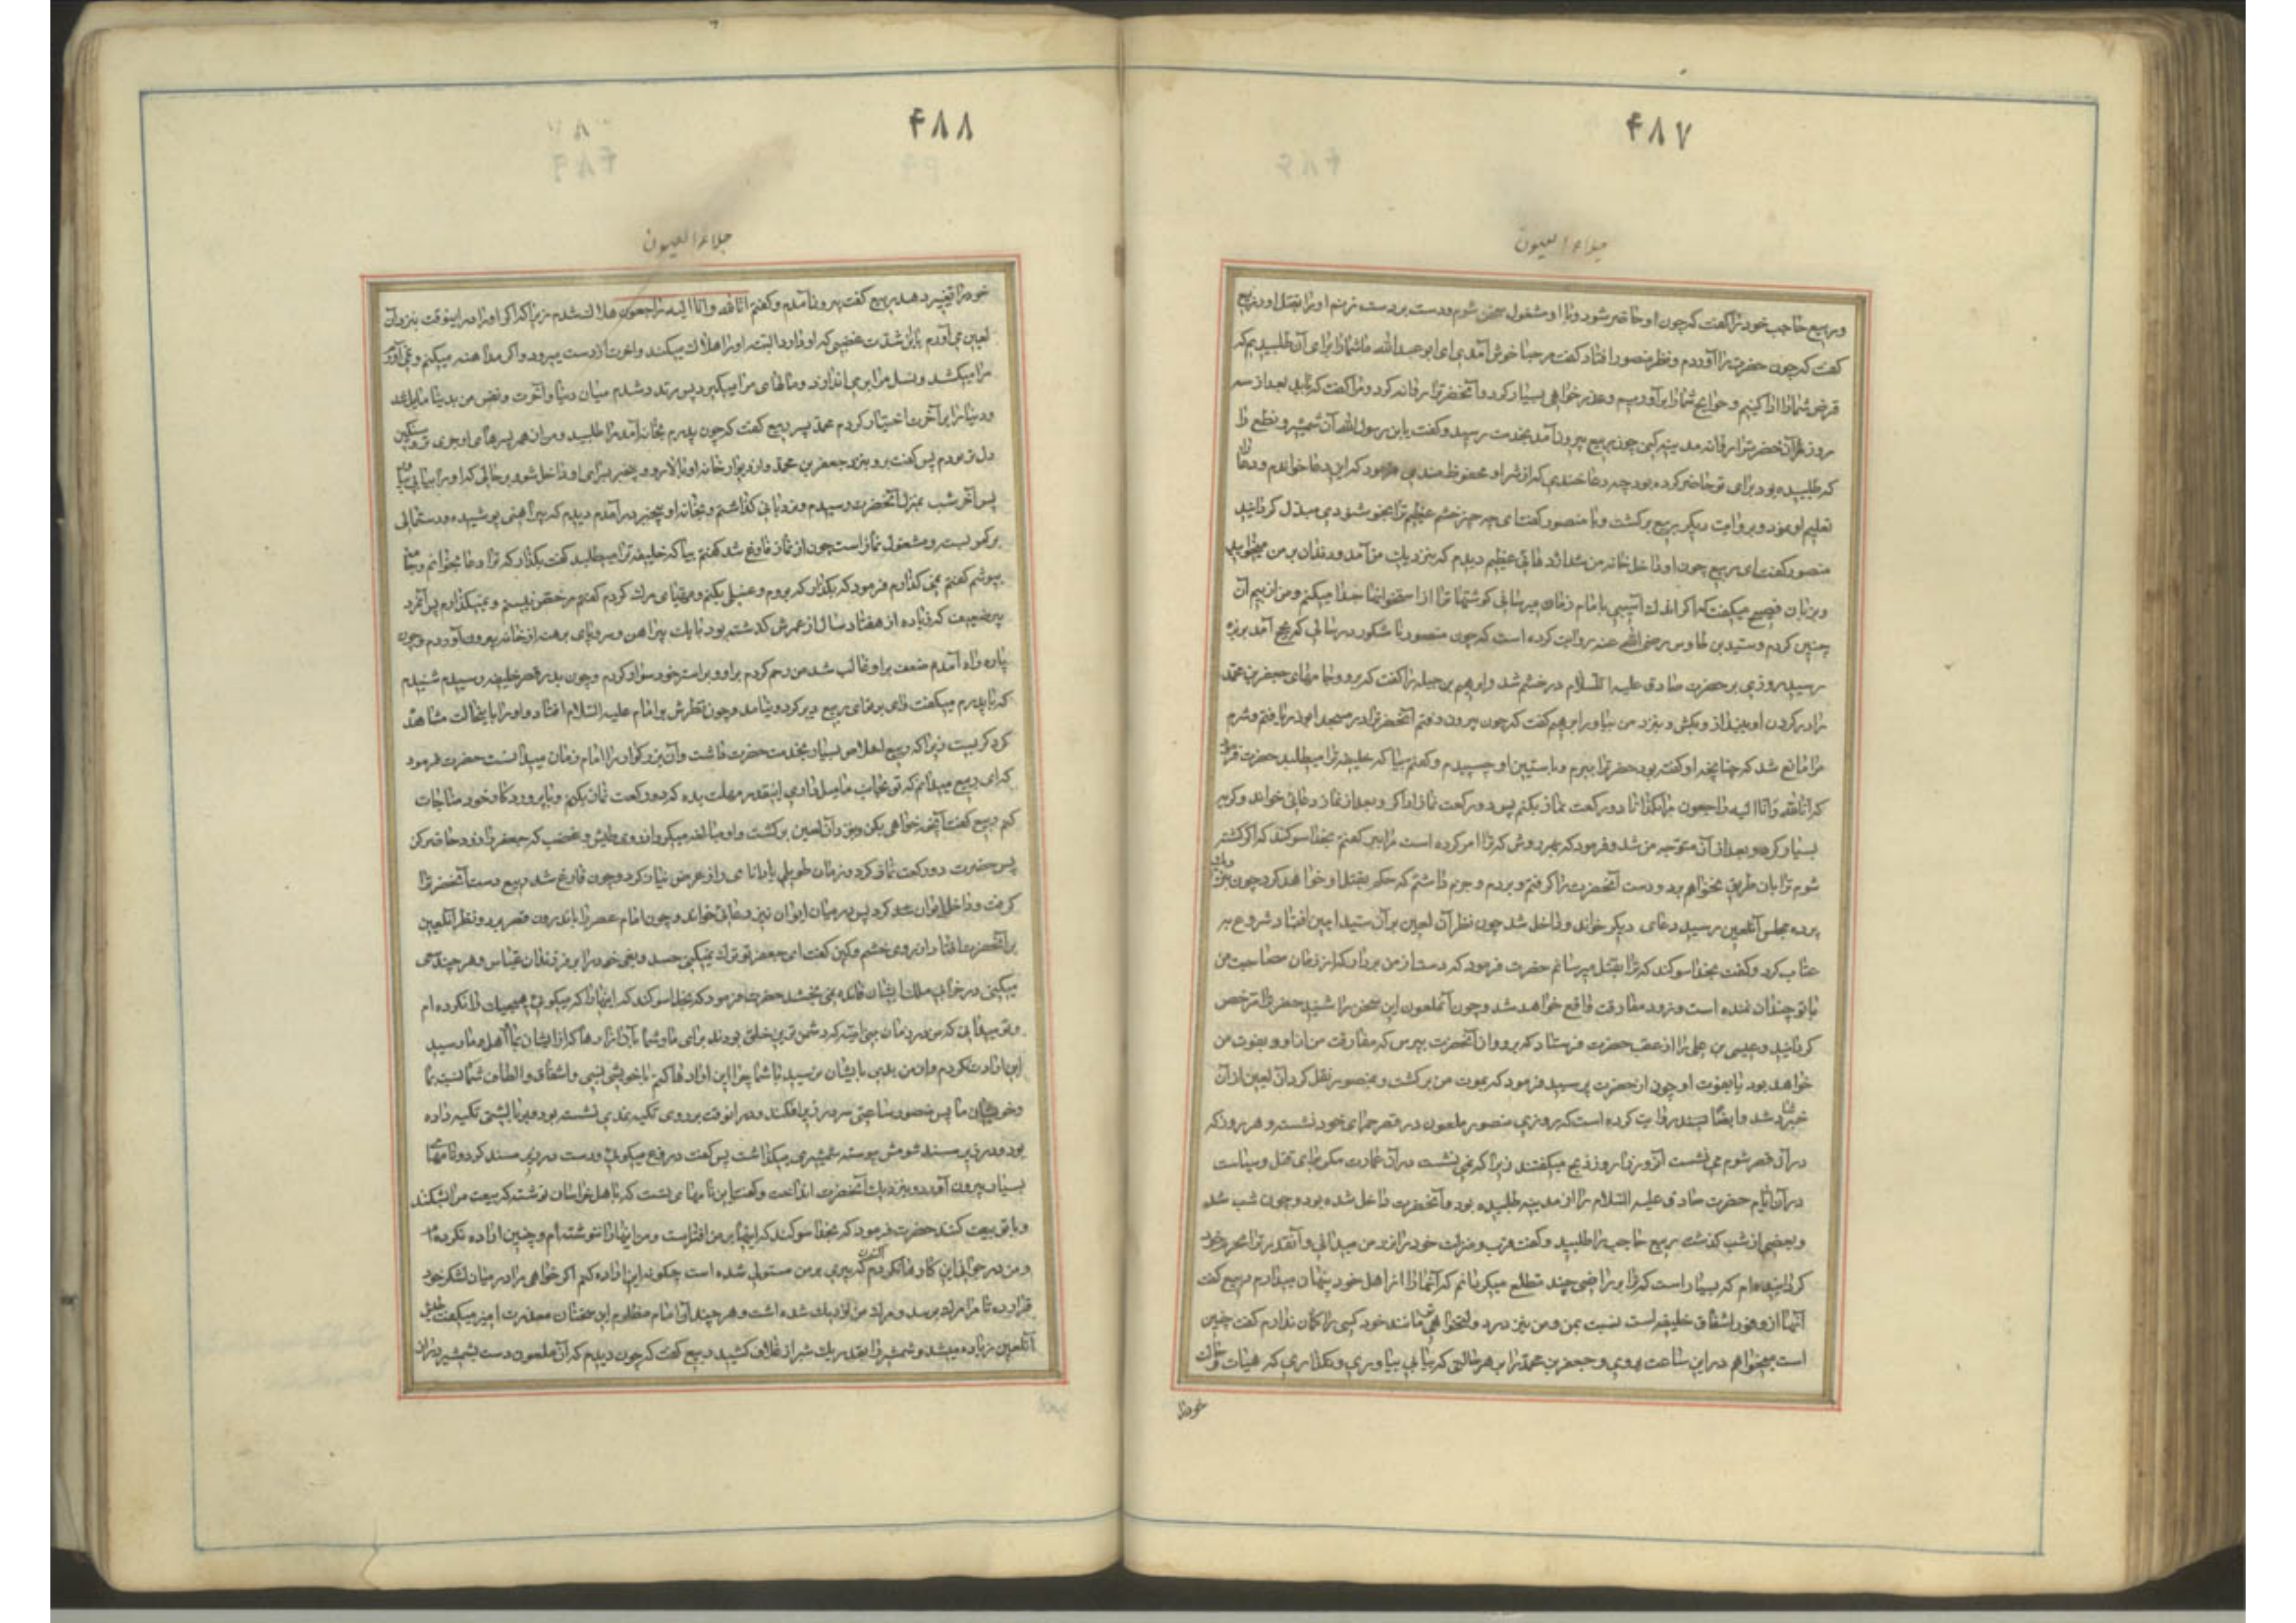 ۴۸۷
جلاء العیون
و ربیع حاجب خود را گفت که چون او حاضر شود و با او مشغول سخن شوم و دست بر دست زنم او را بقتل آور ربیع
گفت که چون حضرت را آوردم و نظر منصور افتاد گفت مرحبا خوش آمدی ای ابو عبدالله ما شما را برای آن طلبیدیم که
قرض شما را ادا کنیم و حوایج شما را برآوریم و عذر خواهی بسیار کرد و آنحضرت را روانه کرد و مرا گفت که باید بعد از سه
روز آنحضرت را روانه مدینه کنی چون ربیع بیرون آمد بخدمت رسید و گفت یابن رسول الله آن شمشیر و نطع را
که طلبیده بود برای تو حاضر کرده بود چه دعا خواندی که از شر او محفوظ ماندی فرمود که این دعا خواندم و دعا را
تعلیم او نمود و بروایت دیگر ربیع برگشت و با منصور گفت ای چه چیز خشم عظیم ترا بخوشنودی مبدل گردانید
منصور گفت ای ربیع چون او داخل خانه من شد اژدهائی عظیم دیدم که بنزدیک من آمد و دندان بر من میخوایید
و بزبان فصیح میگفت که اگر اندک آسیبی بامام زمان میرسانی گوشتها ترا از استخوانها جدا میکنم و من از بیم آن
چنین کردم و سید بن طاوس رضی الله عنه روایت کرده است که چون منصور در سالی که بحج آمد بربذه
رسید روزی بر حضرت صادق علیه السلام در خشم شد و ابراهیم بن جبله را گفت که برو و جامهای جعفر بن محمد
را در گردن او بینداز و بکش و بنزد من بیاور ابراهیم گفت که چون بیرون رفتم آنحضرت را در مسجد ابوذر یافتم و شرم
مرا مانع شد که چنانچه او گفته بود حضرت را ببرم و بآستین او چسبیدم و گفتم بیا که خلیفه ترا میطلبد حضرت فرمود
که انا لله و انا الیه راجعون مرا بگذار تا دو رکعت نماز بکنم پس دو رکعت نماز ادا کرد و بعد از نماز دعائی خواند و گریه
بسیار کرد و بعد از آن متوجه من شد و فرمود که بهر روش که ترا امر کرده است مرا ببر گفتم بخدا سوگند که اگر کشته
شوم ترا بان طریق نخواهم برد و دست آنحضرت را گرفتم و بردم و جزم داشتم که حکم بقتل او خواهد کرد چون بنزدیک
پرده مجلس آنلعین رسید دعای دیگر خواند و داخل شد چون نظر آن لعین بر آن سید امین افتاد شروع به
عتاب کرد و گفت بخدا سوگند که ترا بقتل میرسانم حضرت فرمود که دست از من بردار که از زمان مصاحبت من
با تو چندان نمانده است و زود مفارقت واقع خواهد شد و چون آنملعون این سخن را شنید حضرت را مرخص
گردانید و عیسی بن علی را از عقب حضرت فرستاد که برو و از آنحضرت بپرس که مفارقت من از او بفوت من
خواهد بود یا بفوت او چون از حضرت پرسید فرمود که بموت من برگشت و بمنصور نقل کرد آن لعین از آن
خبر شاد شد و ایضا بسند روایت کرده است که روزی منصور ملعون در قصر حمرای خود نشست و هر روز که
در آن قصر شوم می نشست آن روز را روز ذبح میگفتند زیرا که نمی نشست در آن عمارت مگر برای قتل و سیاست
در آن ایام حضرت صادق علیه السلام را از مدینه طلبیده بود و آنحضرت داخل شده بود و چون شب شد
و بعضی از شب گذشت ربیع حاجب را طلبید و گفت قرب و منزلت خود را نزد من میدانی و آنقدر ترا محرم خود
گردانیده ام که بسیار است که ترا بر رازی چند مطلع میگردانم که آنها را از اهل خود پنهان میدارم ربیع گفت
آنها از وفور اشفاق خلیفه است نسبت بمن و من نیز در دولتخواهی مانند خود کسی را گمان ندارم گفت چنین
است میخواهم در این ساعت بروی و جعفر بن محمد را بر هر حالتی که بیابی بیاوری و نگذاری که هیئات و حال
خود را
۴۸۸
جلاء العیون
خود را تغییر دهد ربیع گفت بیرون آمدم و گفتم انا لله و انا الیه راجعون هلاک شدم زیرا که اگر او را در اینوقت بنزد آن
لعین می آورم باین شدت غضبی که او دارد البته او را هلاک میکند و آخرت از دست میرود و اگر مداهنه میکنم و نمی آورم
مرا میکشد و نسل مرا بر می اندازد و مالهای مرا میگیرد پس مردد شدم میان دنیا و آخرت و نفس من بدنیا مایل شد
و دنیا را بر آخرت اختیار کردم محمد پسر ربیع گفت که چون پدرم بخانه آمد مرا طلبید و من از همه پسرهای او جری تر و سنگین
دل تر بودم پس گفت برو بنزد جعفر بن محمد و از دیوار خانه او بالا رو و بیخبر بسرای او داخل شو و بر حالی که او را بیابی بیا
پس آخر شب بمنزل آنحضرت رسیدم و نردبانی گذاشتم و بخانه او بیخبر در آمدم دیدم که پیراهنی پوشیده و دستمالی
بر کمر بسته و مشغول نماز است چون از نماز فارغ شد گفتم بیا که خلیفه ترا میطلبد گفت بگذار که ترا دعا بخوانم و جامه
بپوشم گفتم نمی گذارم فرمود که بگذار که بروم و غسلی بکنم و مهیای مرک گردم گفتم مرخص نیستم و نمیگذارم پس آنمرد
پیر ضعیف که زیاده از هفتاد سال از عمرش گذشته بود با یک پیراهن و سر و پای برهنه از خانه بیرون آوردم و چون
پاره راه آمدم ضعف بر او غالب شد من رحم کردم بر او و بر استر خود سوار کردم و چون بدر قصر خلیفه رسیدم شنیدم
که با پدرم میگفت وای بر تو ای ربیع دیر کرد و نیامد و چون نظرش بر امام علیه السلام افتاد و او را باینحالت مشاهده
کرد گریست زیرا که ربیع اخلاص بسیار بخدمت حضرت داشت و آن بزرگوار را امام زمان میدانست حضرت فرمود
که ای ربیع میدانم که تو بجانب ما میل داری اینقدر مهلت بده که دو رکعت نماز بکنم و با پروردگار خود مناجات
کنم ربیع گفت آنچه خواهی بکن و بنزد آن لعین برگشت و او مبالغه میکرد از روی طیش و غضب که جعفر را زود حاضر کن
پس حضرت دو رکعت نماز کرد و زمان طویلی با دانای راز عرض نیاز کرد و چون فارغ شد ربیع دست آنحضرت را
گرفت و داخل ایوان کرد پس در میان ایوان نیز دعائی خواند و چون امام عصر را باندرون قصر برد و نظر آنلعین
بر آنحضرت افتاد از روی خشم و کین گفت ای جعفر تو ترک نمیکنی حسد و بغی خود را بر فرزندان عباس و هر چند سعی
میکنی در خرابی ملک ایشان فائده نمی بخشد حضرت فرمود که بخدا سوگند که اینها را که میگوئی هیچیک را نکرده ام
و تو میدانی که من در زمان بنی امیه که دشمن ترین خلق بودند برای ما و شما با آن آزارها که از ایشان بما و اهل بیت ما رسید
این اراده نکردم و از من بدی بایشان نرسید با شما چرا این ارادها کنم با خویشی نسبی و اشفاق و الطاف شما نسبت بما
و خویشان ما پس منصور ساعتی سر در زیر افکند و در آنوقت بر روی تکیه نمدی نشسته بود و بر بالشی تکیه داده
بود و در زیر مسند شومش پیوسته شمشیری میگذاشت پس گفت دروغ میگوئی و دست در زیر مسند کرد و نامهای
بسیار بیرون آورد و بنزدیک آنحضرت انداخت و گفت این نامهای تست که باهل خراسان نوشته که بیعت مرا بشکنند
و با تو بیعت کنند حضرت فرمود که بخدا سوگند که اینها بر من افتراست و من اینها را ننوشته ام و چنین اراده نکرده ام
و من در جوانی این کارها نکردم اکنون که پیری بر من مستولی شده است چگونه این اراده کنم اگر خواهی مرا در میان لشکر خود
قرار ده تا مرا مرک برسد و مرک من نزدیک شده است و هر چند آن امام مظلوم این سخنان معذرت آمیز میگفت طیش
آنلعین زیاده میشد و شمشیر را بقدر یک شبر از غلاف کشید ربیع گفت که چون دیدم که آن ملعون دست بشمشیر دراز